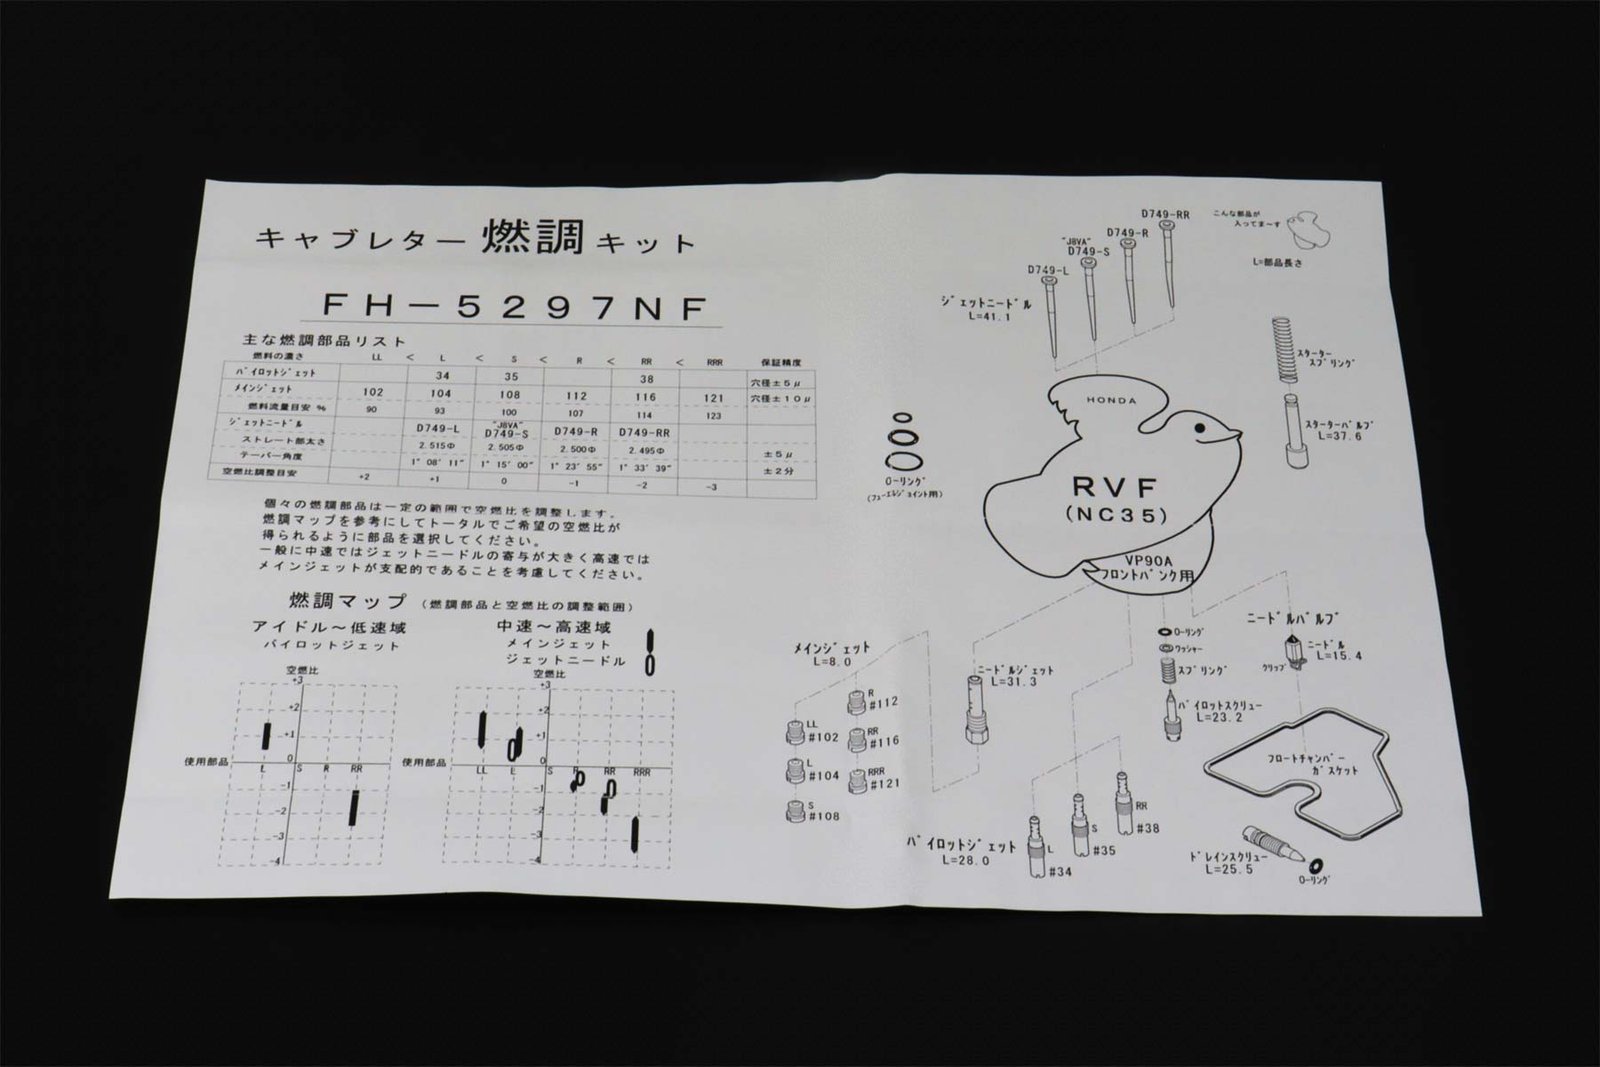 キャブレター 燃調 キット
FH－5297NF
主な燃調部品リスト
燃料の濃さ LL < L < S < R < RR < RRR 保証精度
パイロットジェット 34 35 38 穴径±5μ
メインジェット 102 104 108 112 116 121 穴径±10μ
燃料流量目安 % 90 93 100 107 114 123
ジェットニードル D749-L "J8VA" D749-S D749-R D749-RR
ストレート部太さ 2.515Φ 2.505Φ 2.500Φ 2.495Φ ±5μ
テーパー角度 1°08′11″ 1°15′00″ 1°23′55″ 1°33′39″ ±2分
空燃比調整目安 +2 +1 0 −1 −2 −3
個々の燃調部品は一定の範囲で空燃比を調整します。
燃調マップを参考にしてトータルでご希望の空燃比が
得られるように部品を選択してください。
一般に中速ではジェットニードルの寄与が大きく高速では
メインジェットが支配的であることを考慮してください。
燃調マップ （燃調部品と空燃比の調整範囲）
アイドル～低速域
パイロットジェット
空燃比
+3
+2
+1
0
使用部品 L S R RR
−1
−2
−3
−4
中速～高速域
メインジェット
ジェットニードル
空燃比
+3
+2
+1
0
使用部品 LL L S R RR RRR
−1
−2
−3
−4
こんな部品が
入ってま～す
L=部品長さ
D749-RR
D749-R
"J8VA"
D749-S
D749-L
ジェットニードル
L=41.1
スターター
スプリング
スターターバルブ
L=37.6
Oーリング
(フューエルジョイント用)
HONDA
RVF
(NC35)
VP90A
フロントバンク用
メインジェット
L=8.0
R
#112
LL
#102
RR
#116
L
#104
RRR
#121
S
#108
ニードルジェット
L=31.3
Oーリング
ワッシャー
スプリング
パイロットスクリュー
L=23.2
ニードルバルブ
ニードル
L=15.4
クリップ
フロートチャンバー
ガスケット
パイロットジェット
L=28.0
L
#34
S
#35
RR
#38
ドレインスクリュー
L=25.5
Oーリング